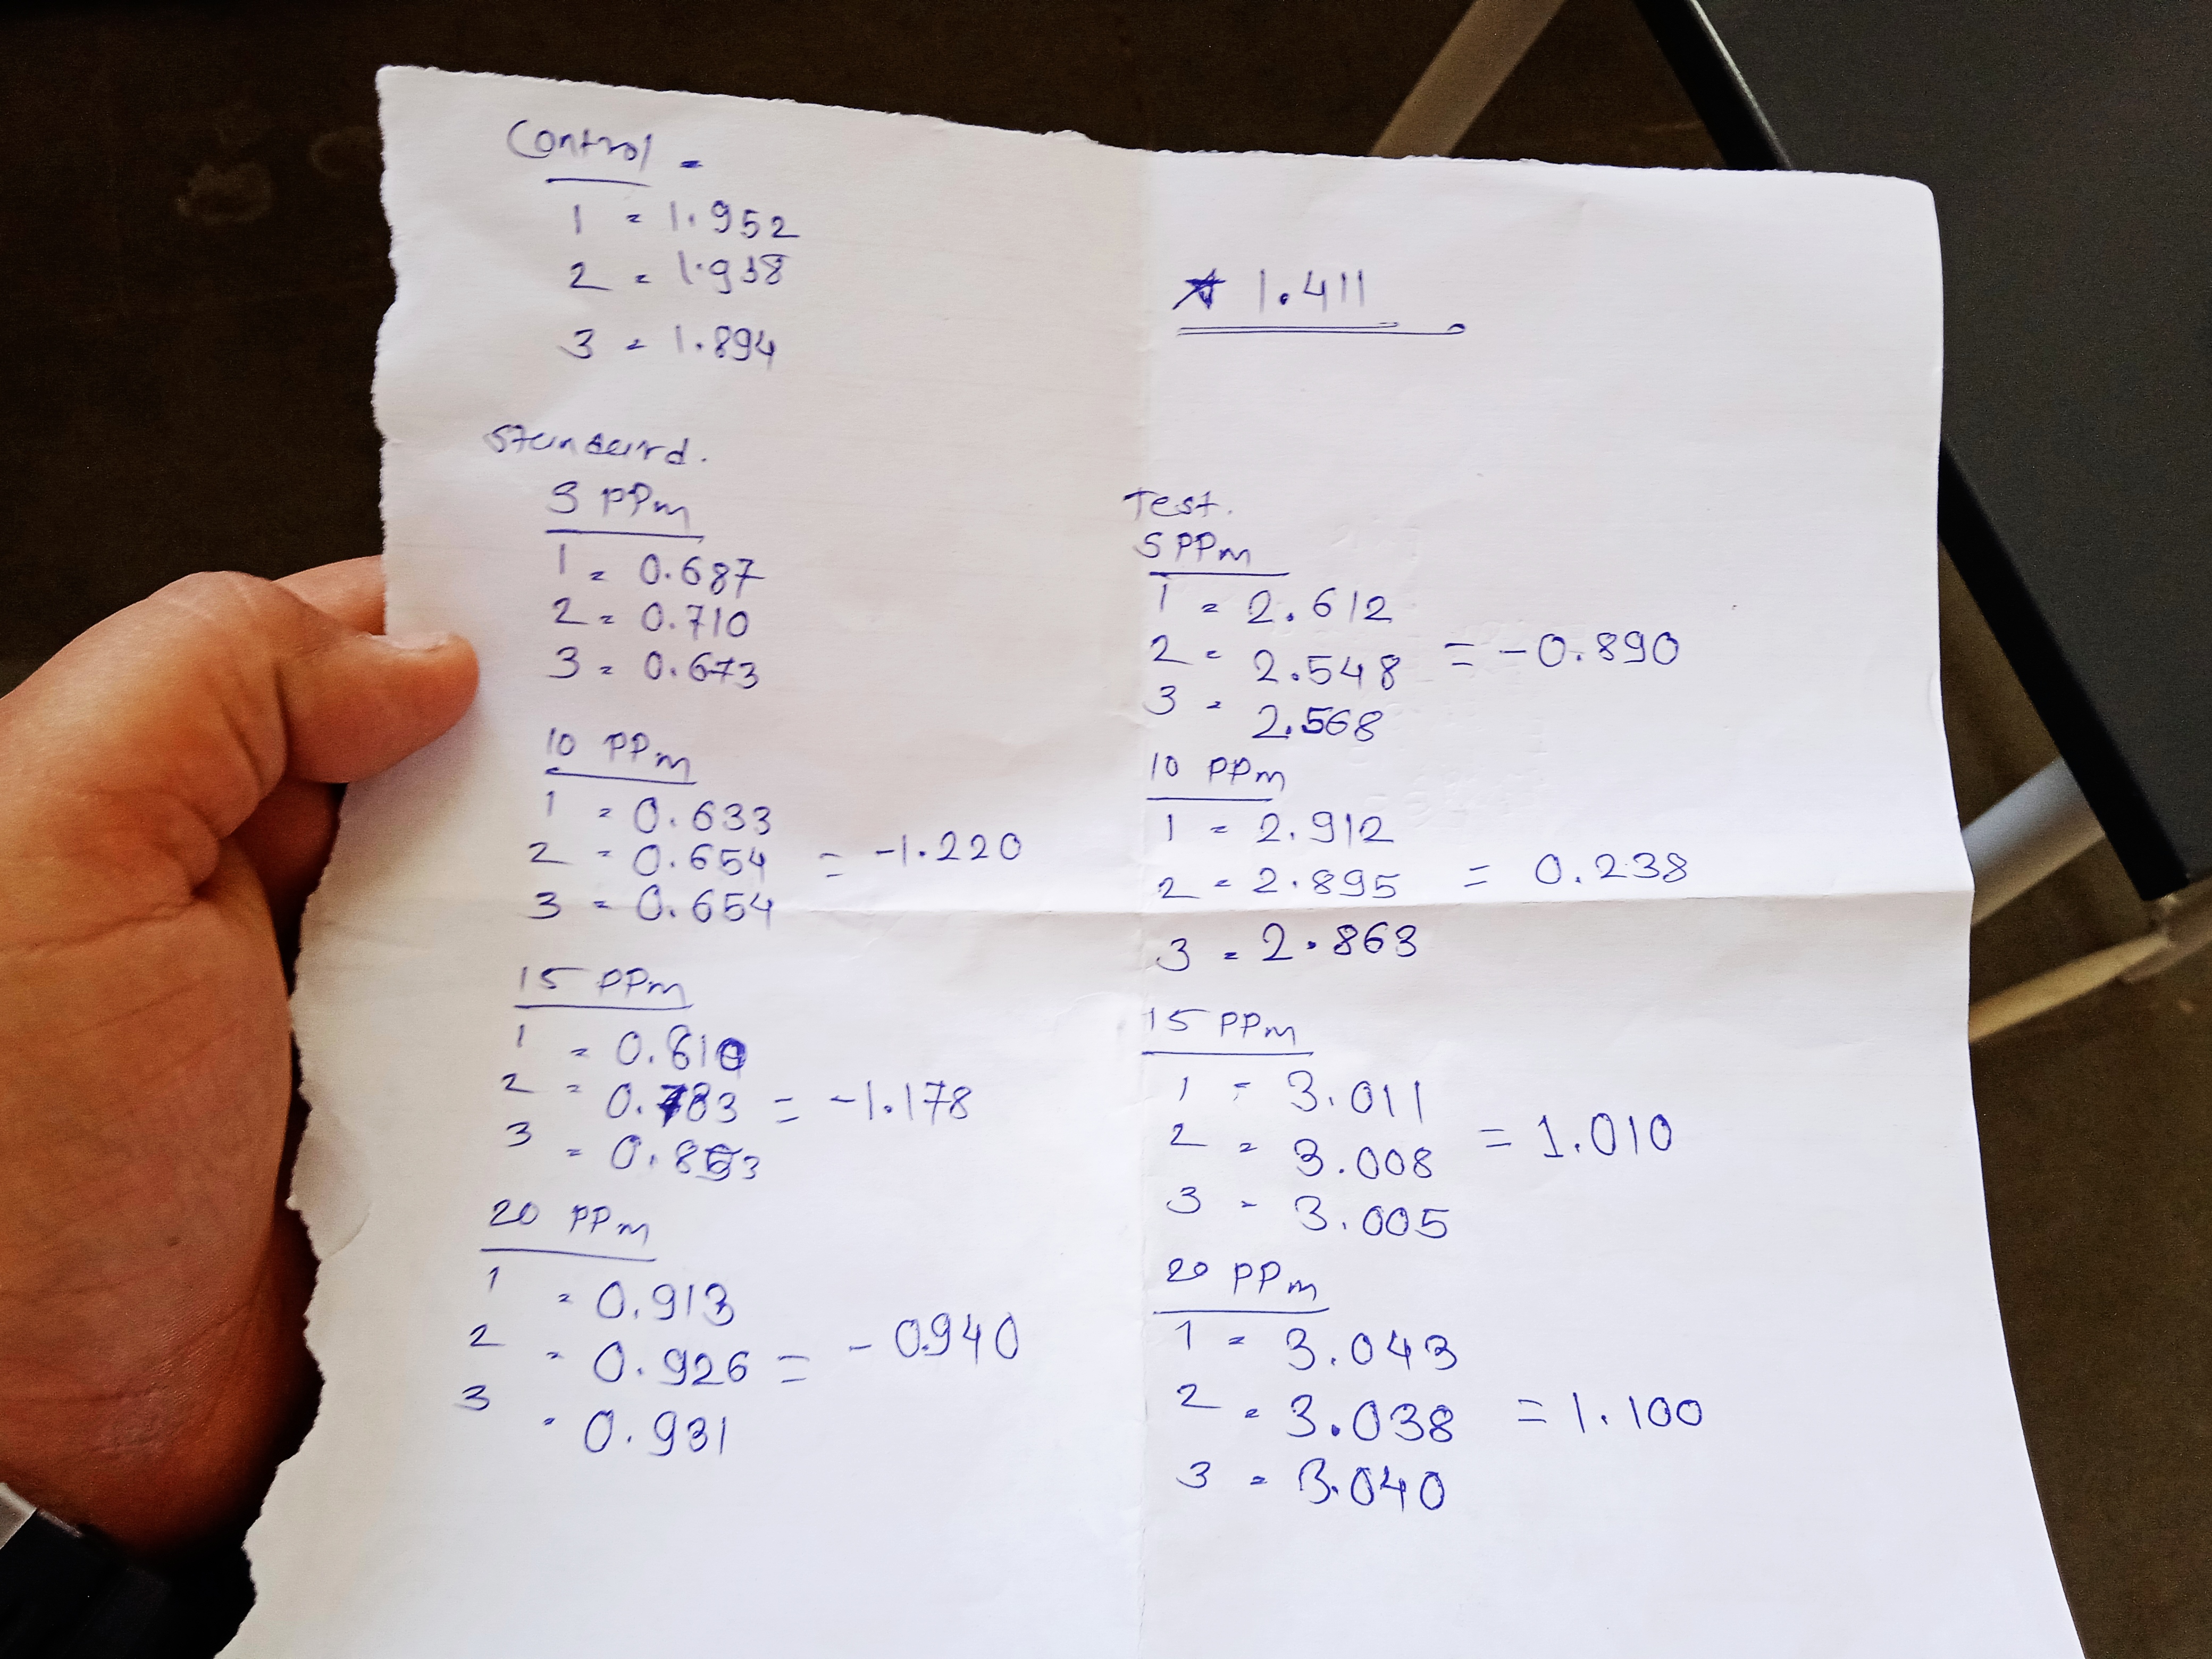 Control =
1 = 1.952
2 = 1.938
3 = 1.894
★ 1.411
Standard.
5 PPm
1 = 0.687
2 = 0.710
3 = 0.673
10 PPm
1 = 0.633
2 = 0.654 = -1.220
3 = 0.654
15 PPm
1 = 0.610
2 = 0.783 = -1.178
3 =
20 PPm
1 = 0.913
2 = 0.926 = - 0.940
3 = 0.931
Test.
5 PPm
1 = 2.612
2 = 2.548 = -0.890
3 = 2.568
10 PPm
1 = 2.912
2 = 2.895 = 0.238
3 = 2.863
15 PPm
1 = 3.011
2 = 3.008 = 1.010
3 = 3.005
20 PPm
1 = 3.043
2 = 3.038 = 1.100
3 = 3.040